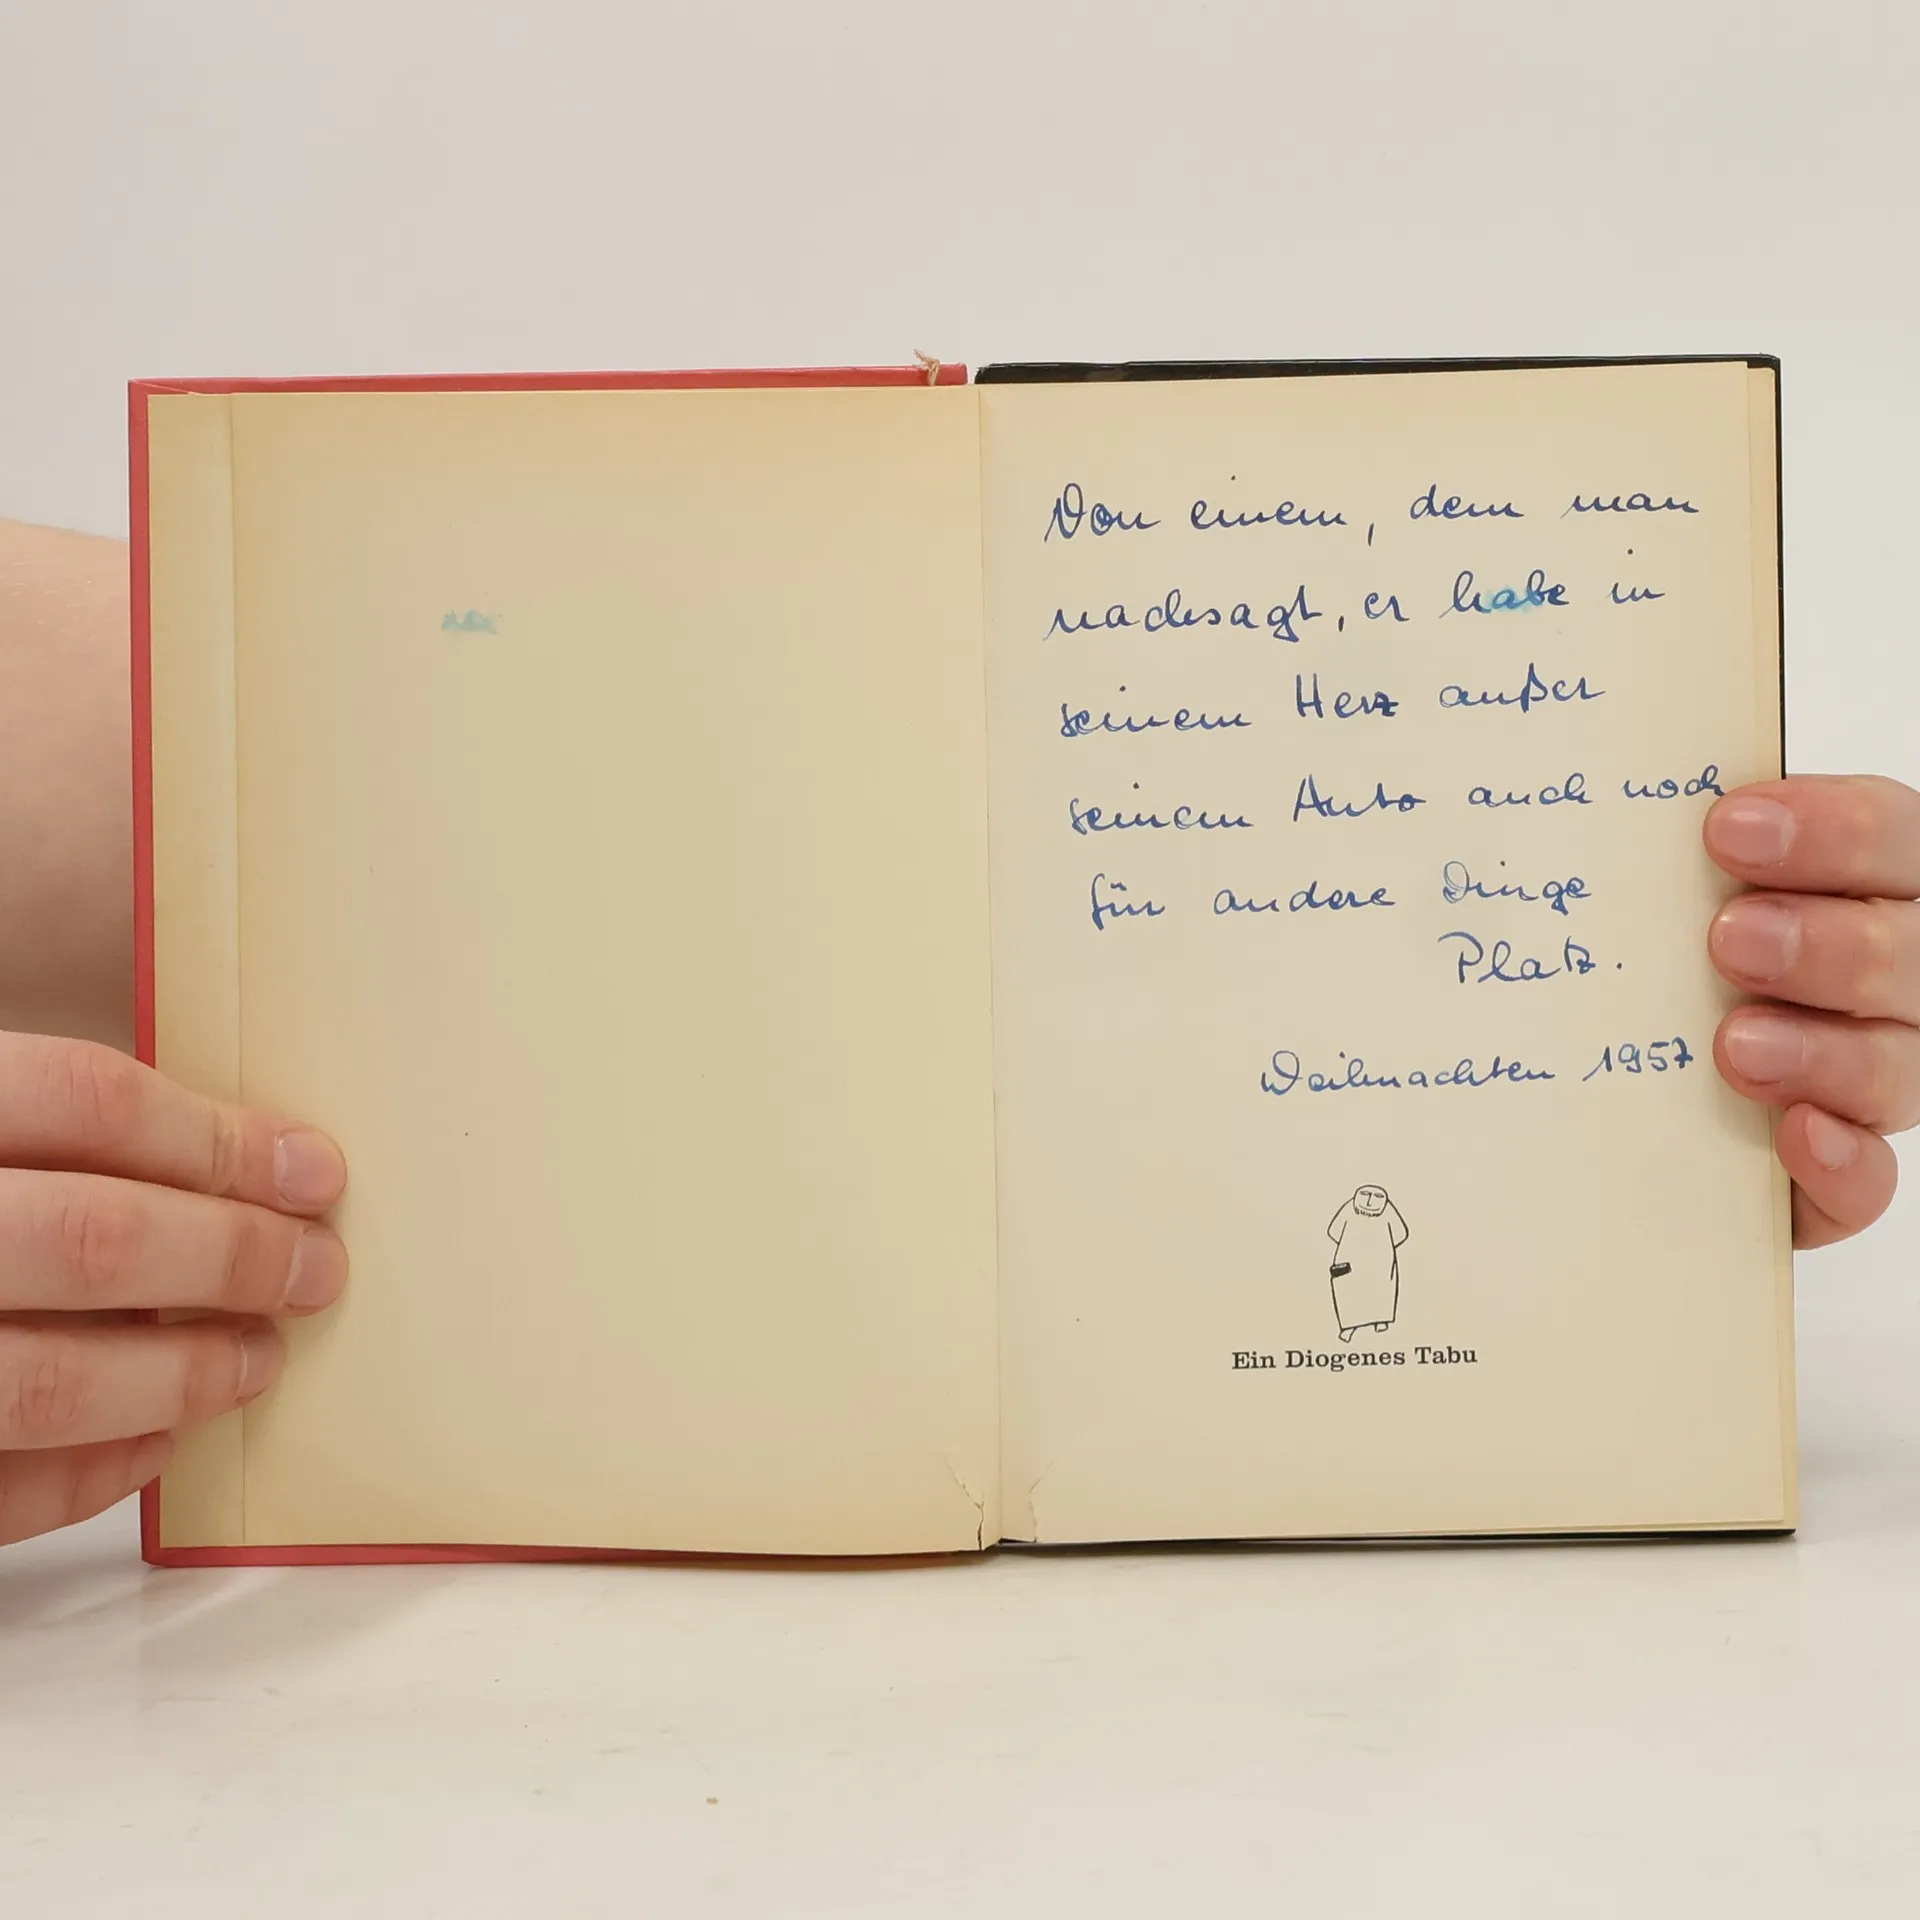 Von einem, dem man
nachsagt, er habe in
seinem Herz außer
seinem Auto auch noch
für andere Dinge
Platz.
Weihnachten 1957
Ein Diogenes Tabu